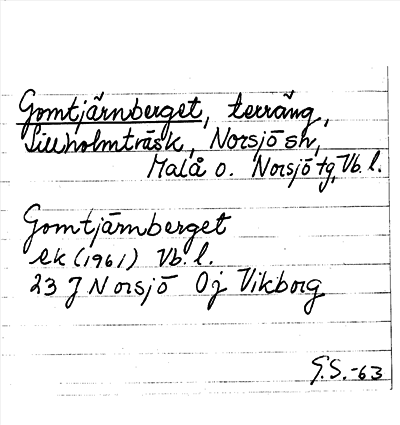 Gomtjärnberget, terräng,
Lillholmträsk, Norsjö sn,
Malå o. Norsjö tg, Vb. l.
Gomtjärnberget
ek (1961) Vb. l.
23 J Norsjö 0j Vikborg
G.S.-63